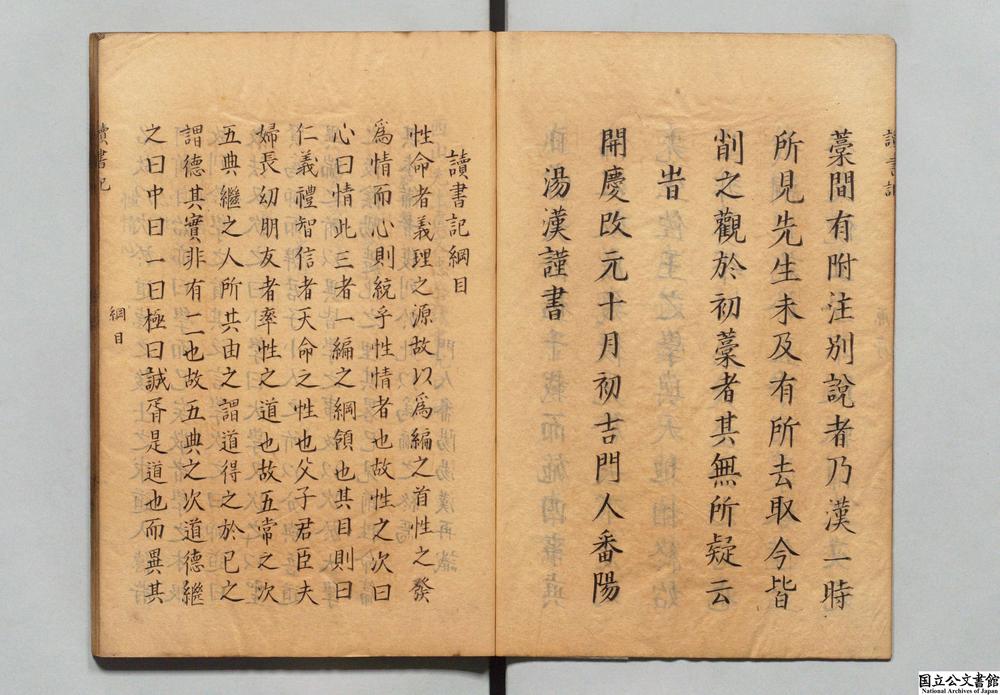 讀書記
藁間有附注別說者乃漢一時
所見先生未及有所去取今皆
削之觀於初藁者其無所疑云
旹
開慶改元十月初吉門人番陽
湯漢謹書
讀書記綱目
性命者義理之源故以爲編之首性之發
爲情而心則統乎性情者也故性之次曰
心曰情此三者一編之綱領也其目則曰
仁義禮智信者天命之性也父子君臣夫
婦長幼朋友者率性之道也故五常之次
五典繼之人所共由之謂道得之於己之
謂德其實非有二也故五典之次道德繼
之曰中曰一曰極曰誠胥是道也而異其
讀書記
綱目
国立公文書館
National Archives of Japan